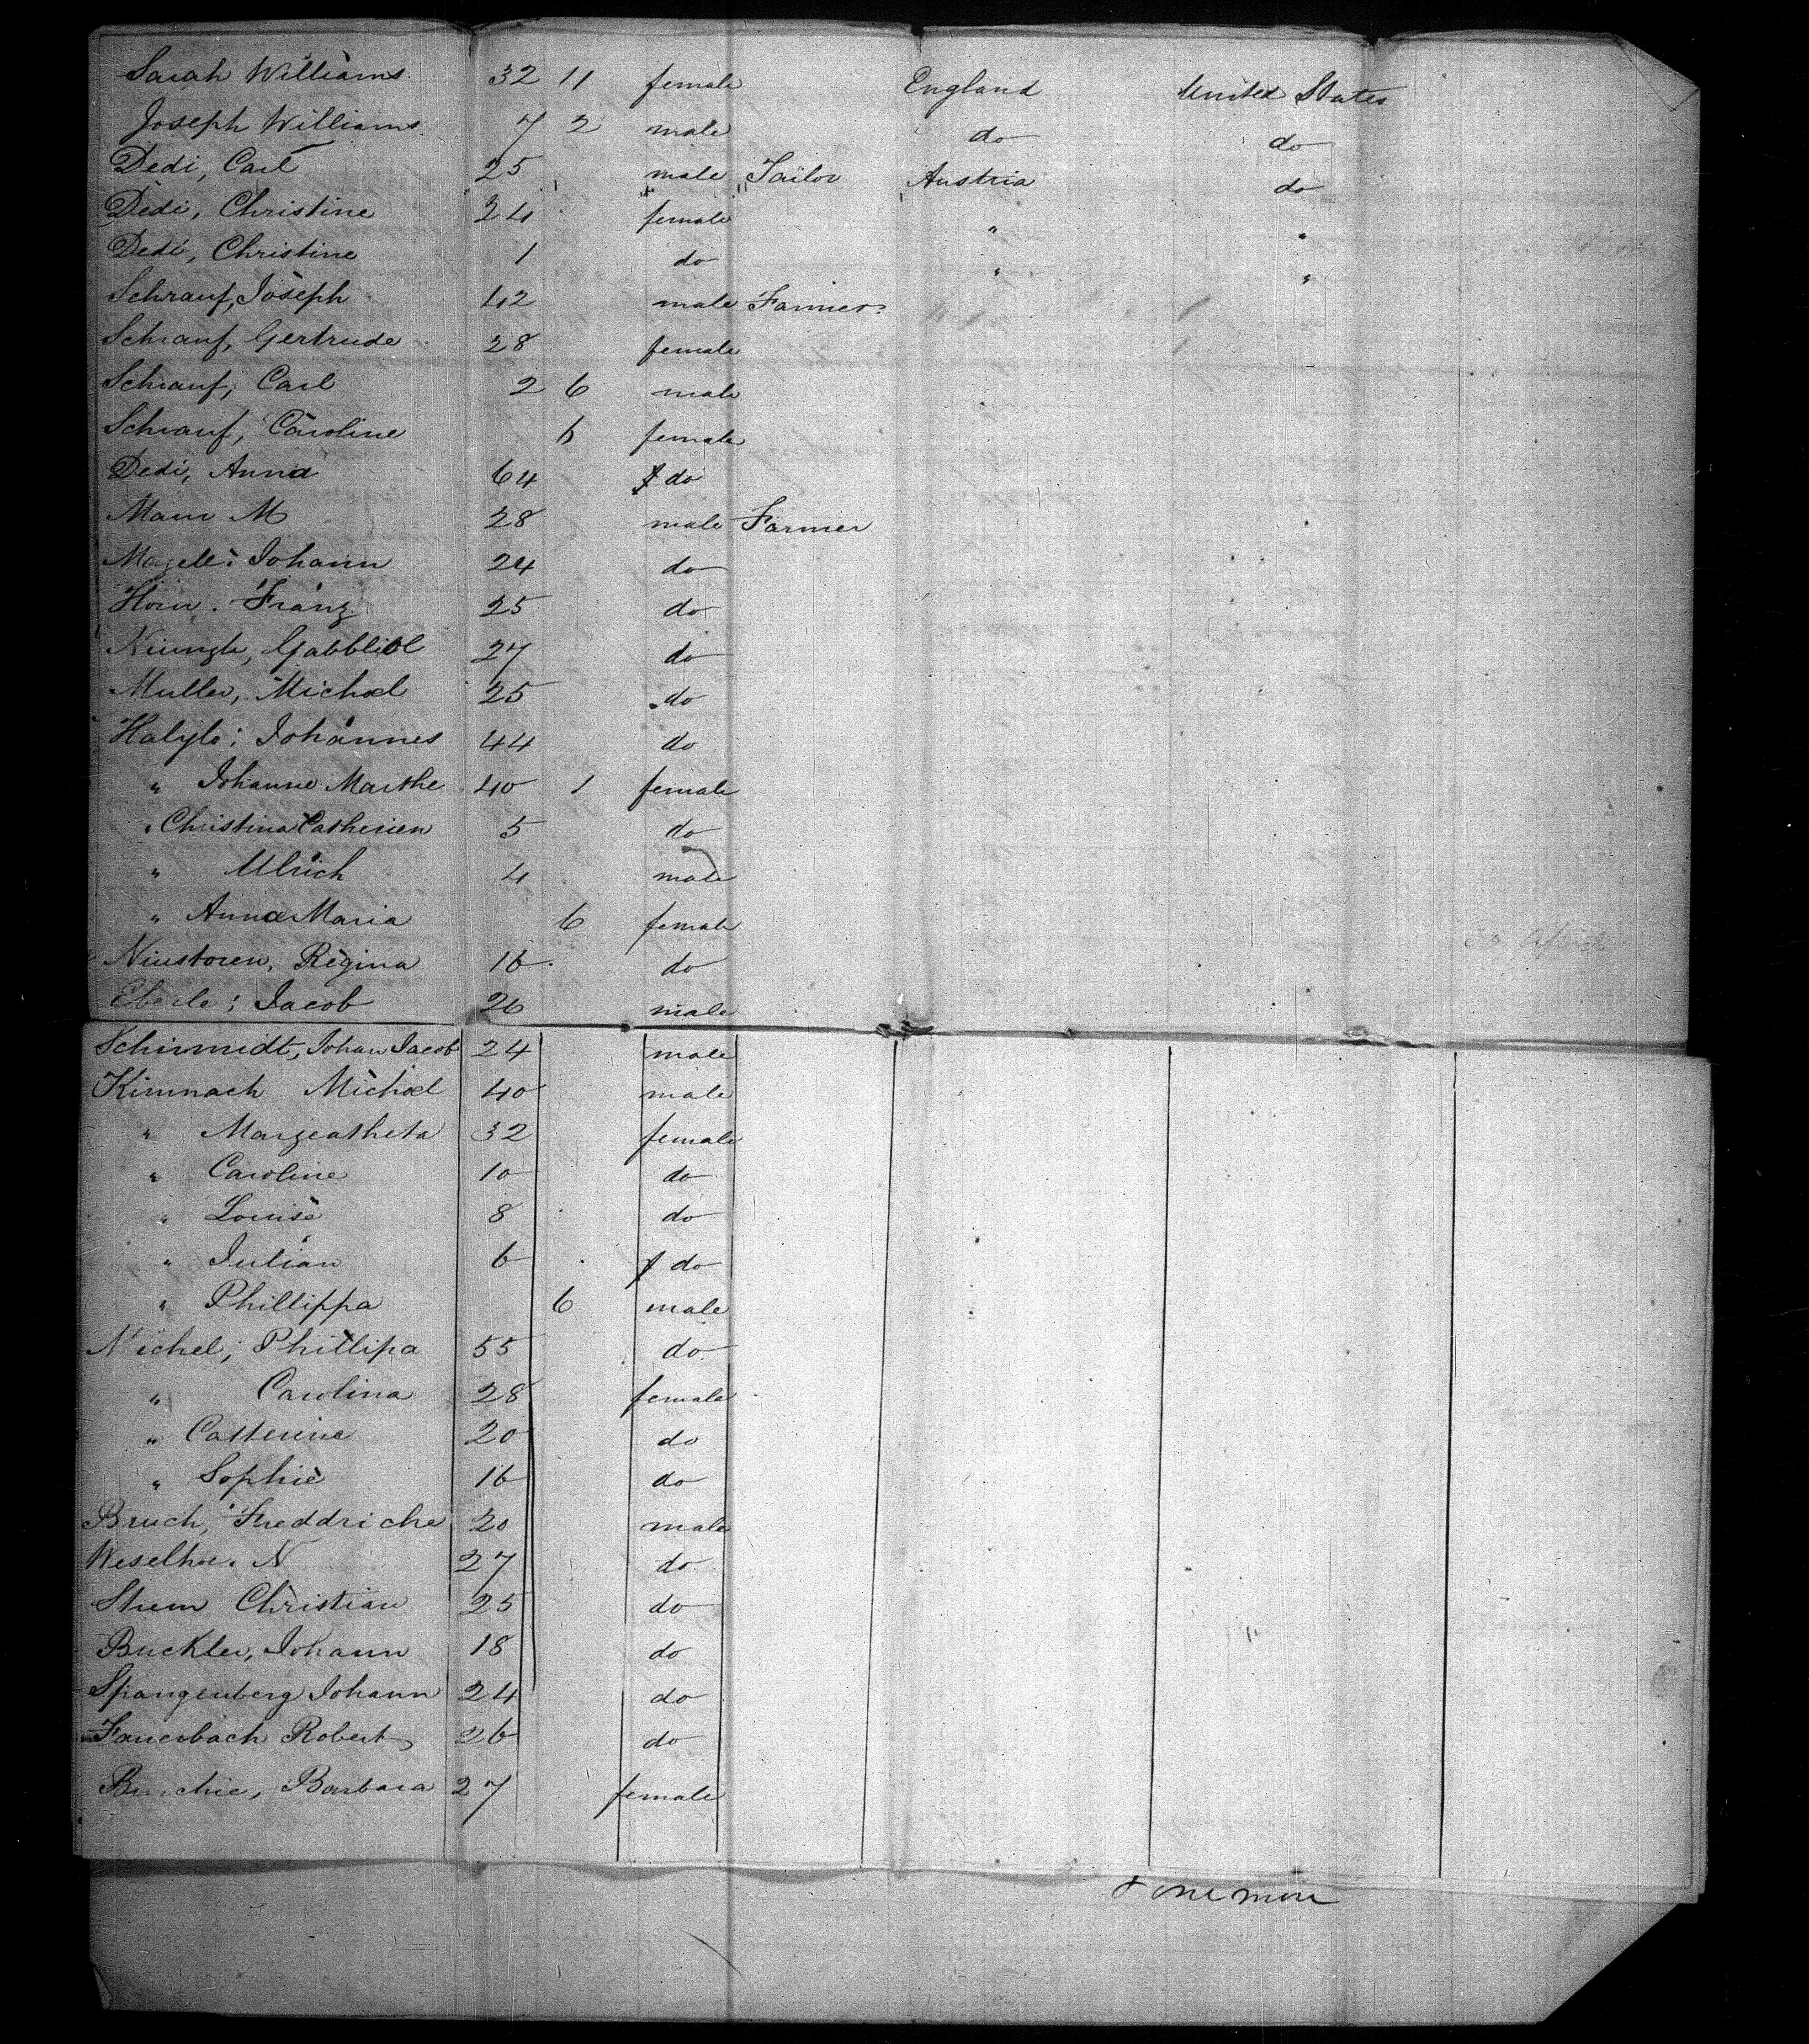 Sarah Williams 32 11 female England United States
Joseph Williams 7 2 male do do
Dedi, Carl 25 male Tailor Austria do
Dedi, Christine 24 " female " " "
Dedi, Christine 1 do " "
Schrauf, Joseph 42 male Farmer
Schrauf, Gertrude 28 female
Schrauf, Carl 2 6 male
Schrauf, Caroline 6 female
Dedi, Anna 64 do
Maur M 28 male Farmer
Magele: Johann 24 do
Horn. Franz 25 do
27 do
Muller, Michael 25 do
Halylo: Johannes 44 do
" Johanne Marthe 40 1 female
" Christina Catherien 5 do
" Ulrich 4 male
" Anna Maria 6 female
30 April
Niustoren, Regina 16 do
Eberle: Jacob 26 male
Schirmidt, Johan Jacob 24 male
Kimnach Michael 40 male
" Margeatheta 32 female
" Caroline 10 do
" Louise 8 do
" Julian 6 do
" Phillippa 6 male
Michel; Phillipa 55 do
" Carolina 28 female
" Catterine 20 do
" Sophie 16 do
Bruch, Freddriche 20 male
N 27 do
Strem Christian 25 do
Buckler, Johann 18 do
Spangenberg Johann 24 do
Fauerbach Robert 26 do
Barbara 27 female
& one more